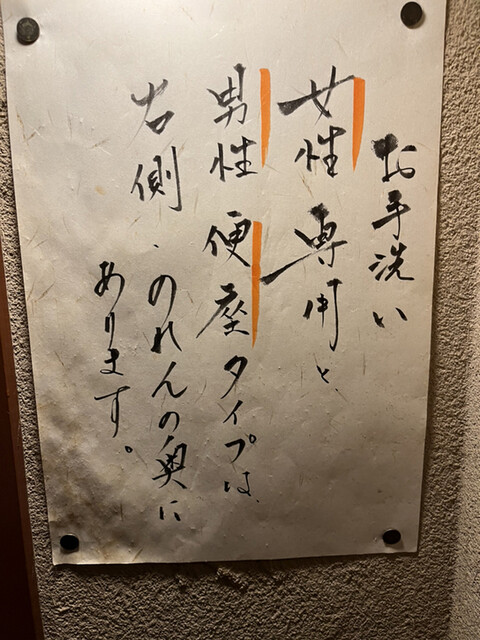 お手洗い
女性専用と、
男性便座タイプは、
右側、のれんの奥に
あります。